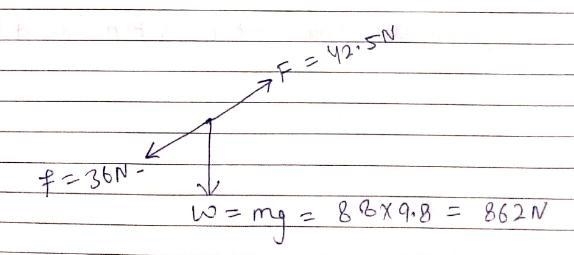 F = 42.5N
f = 36N -
W = mg = 88x9.8 = 862N